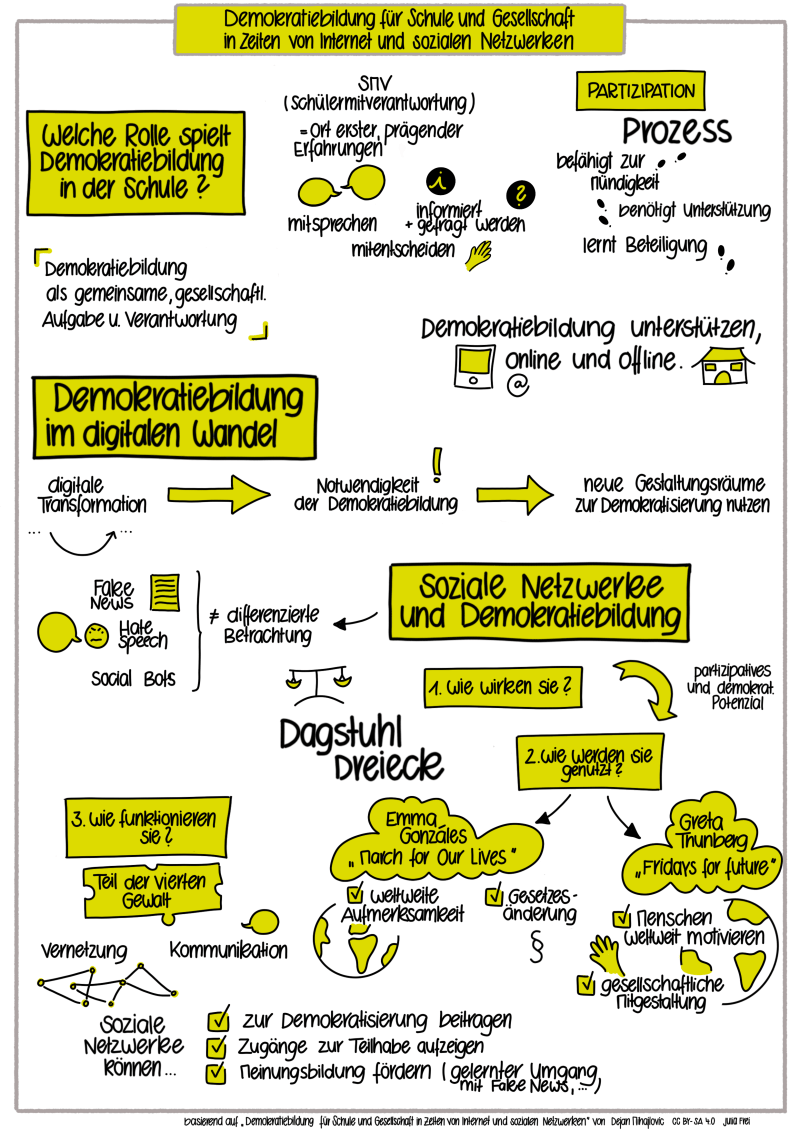 Demokratiebildung für Schule und Gesellschaft
in Zeiten von Internet und sozialen Netzwerken
Welche Rolle spielt
Demokratiebildung
in der Schule ?
SMV
(Schülermitverantwortung)
= Ort erster, prägender
Erfahrungen
mitsprechen
i
informiert
+ gefragt werden
?
mitentscheiden
PARTIZIPATION
Prozess
befähigt zur
Mündigkeit
benötigt Unterstützung
lernt Beteiligung
Demokratiebildung
als gemeinsame, gesellschaftl.
Aufgabe u. Verantwortung
Demokratiebildung unterstützen,
online und offline.
@
Demokratiebildung
im digitalen Wandel
digitale
Transformation
... ...
!
Notwendigkeit
der Demokratiebildung
neue Gestaltungsräume
zur Demokratisierung nutzen
Soziale Netzwerke
und Demokratiebildung
Fake
News
Hate
speech
Social Bots
≠ differenzierte
Betrachtung
1. Wie wirken sie ?
partizipatives
und demokrat.
Potenzial
Dagstuhl
Dreieck
2. Wie werden sie
genutzt ?
3. Wie funktionieren
sie ?
Teil der vierten
Gewalt
Vernetzung
Kommunikation
Emma
Gonzáles
„March for Our Lives"
weltweite
Aufmerksamkeit
Gesetzes-
änderung
§
Greta
Thunberg
„Fridays for future"
Menschen
weltweit motivieren
gesellschaftliche
Mitgestaltung
Soziale
Netzwerke
können ...
zur Demokratisierung beitragen
Zugänge zur Teilhabe aufzeigen
Meinungsbildung fördern (gelernter Umgang
mit Fake News, ...)
basierend auf „Demokratiebildung für Schule und Gesellschaft in Zeiten von Internet und sozialen Netzwerken" von Dejan Mihajlovic CC BY-SA 4.0 Julia Frei